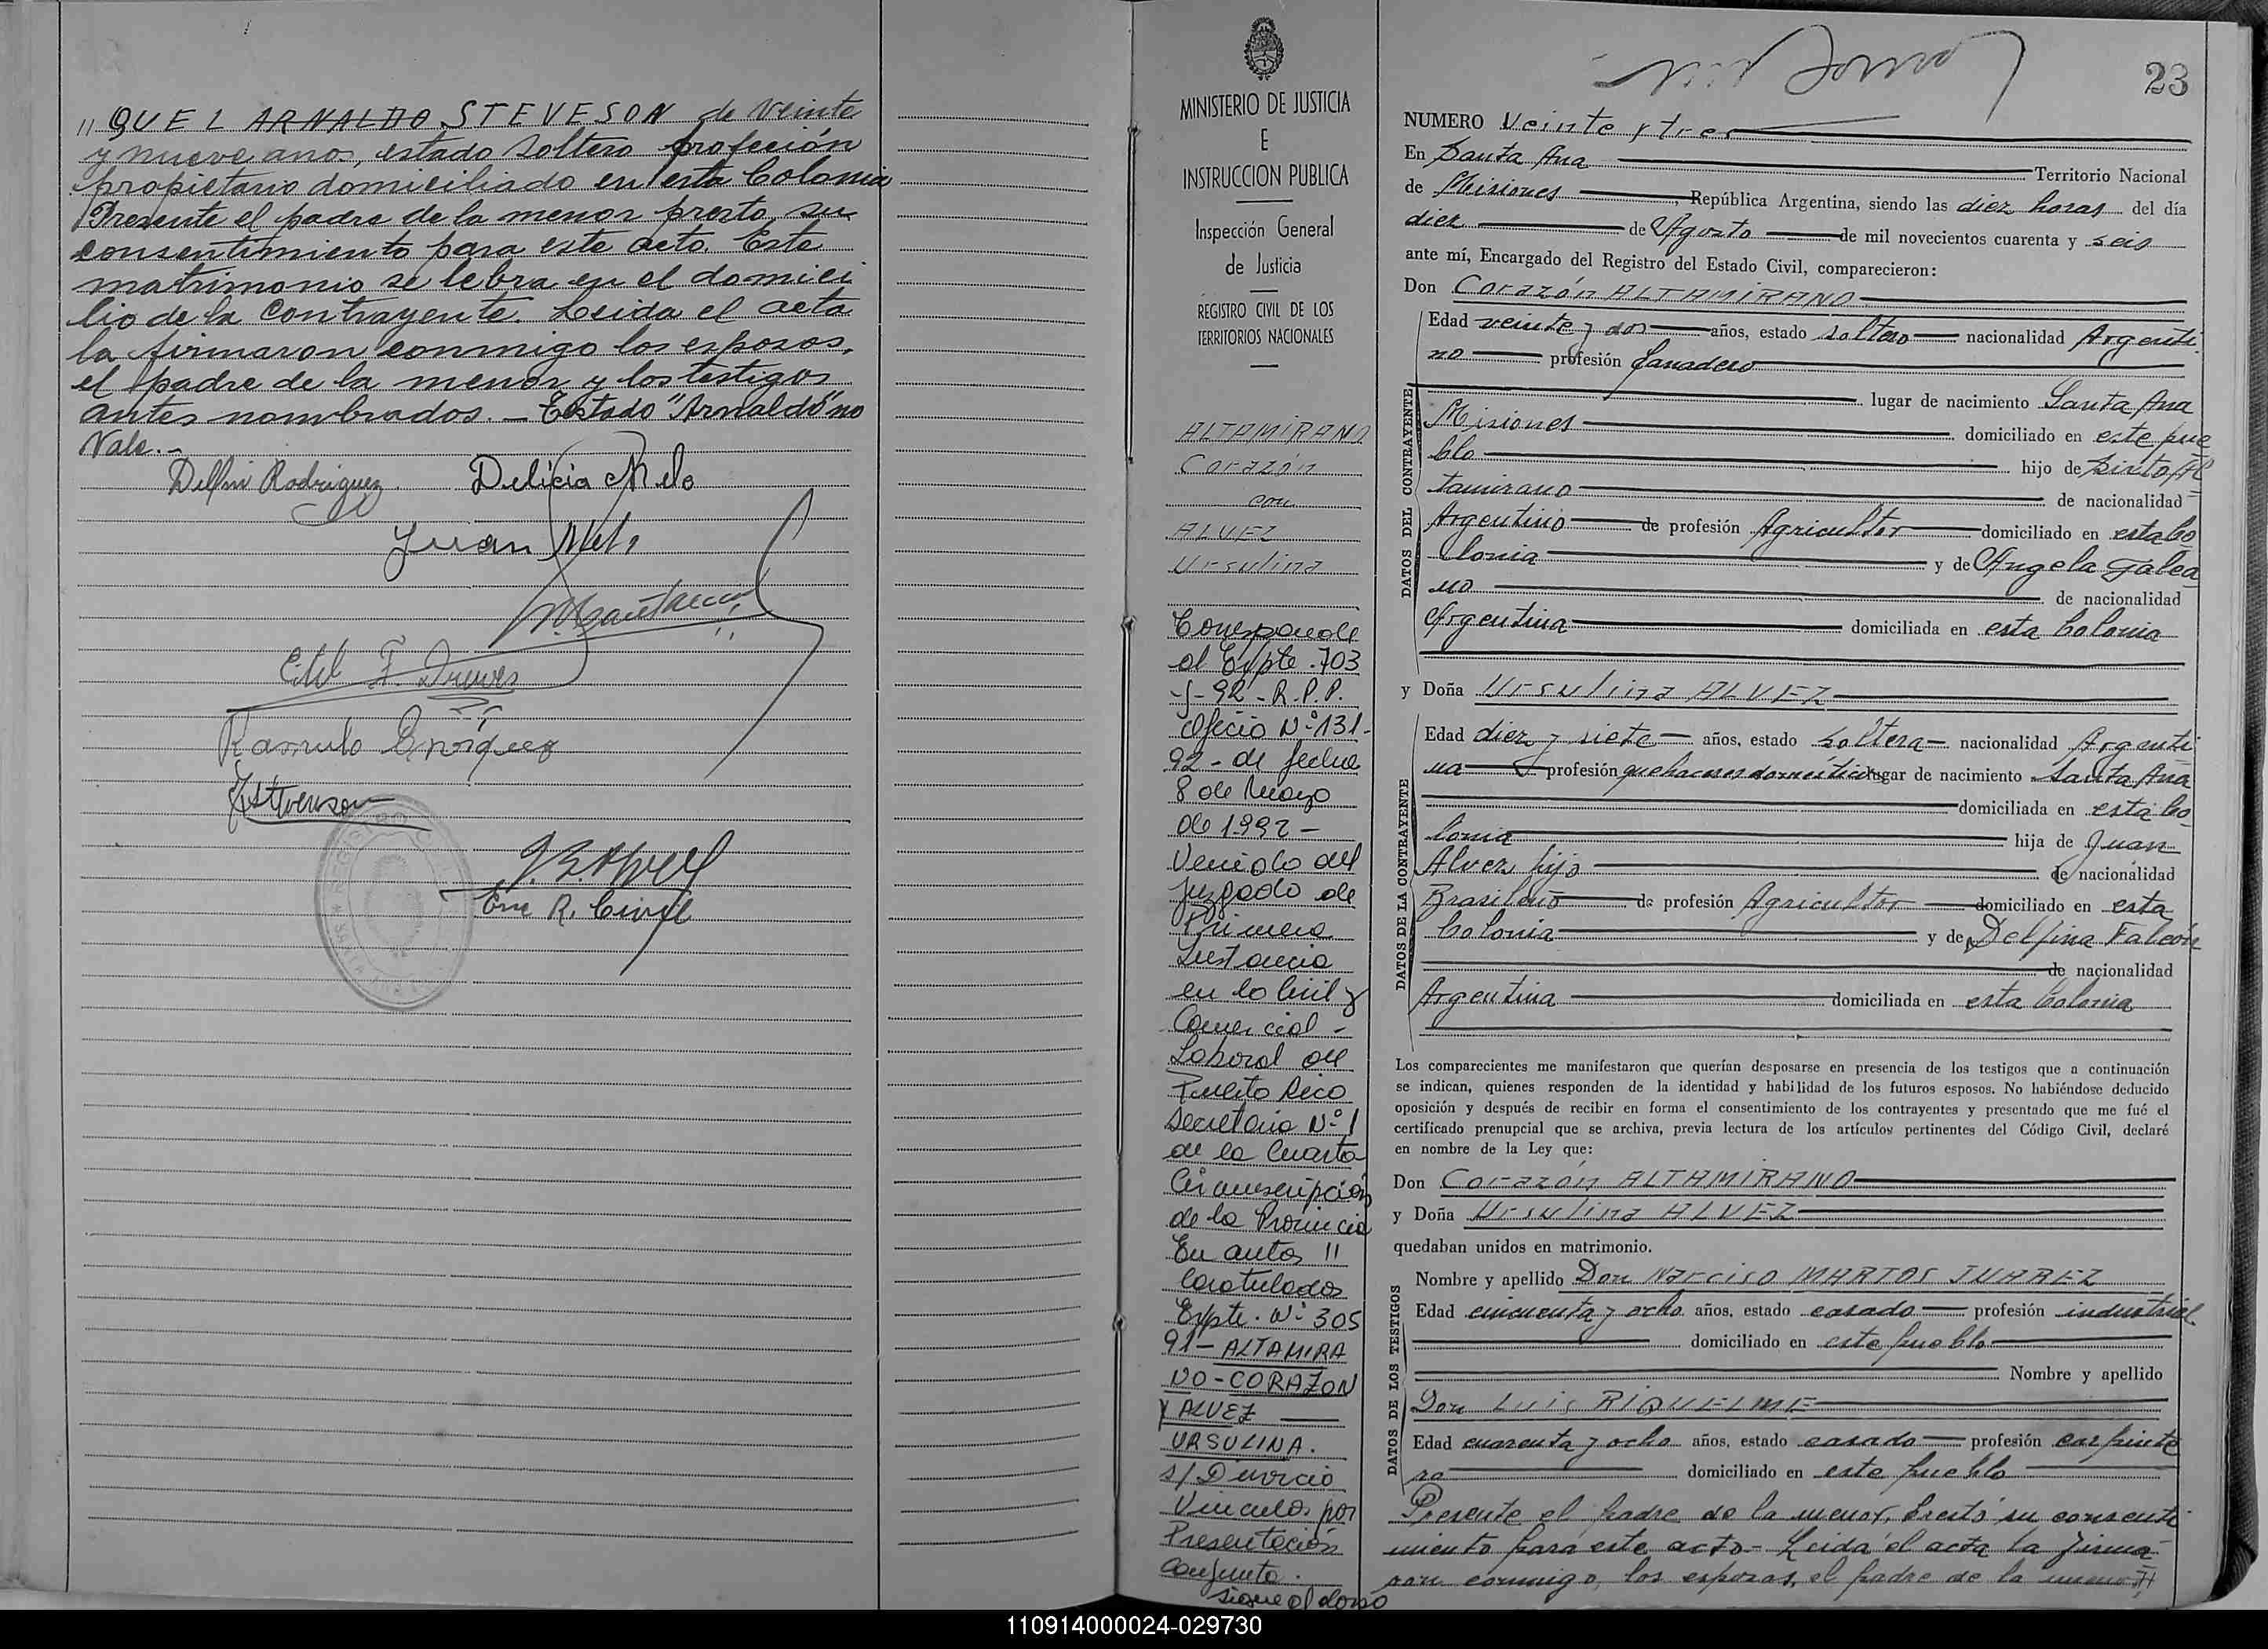 "QUEL ARNALDO STEVESON de veinte
y nueve anos, estado soltero profeción
propietario domiciliado en esta Colonia
Presente el padre de la menor presto, su
consentimiento para este acto. Este
matrimonio se lebra en el domici
lio de la Contrayente. Leida el acta
la firmaron conmigo los esposos,
el padre de la menor y los testigos
antes nombrados. - Testado "Arnaldo" no
Vale. -
Delfin Rodriguez. Delicia Melo
Juan Melo
F. Druves
Ramulo Enriquez
J. Stevenson
Enc R. Civil
MINISTERIO DE JUSTICIA
E
INSTRUCCION PUBLICA
Inspección General
de Justicia
REGISTRO CIVIL DE LOS
TERRITORIOS NACIONALES
ALTAMIRANO
Corazón
con
ALVEZ
Ursulina
Corresponde
al Expte. 703
-J-92-R.P.P.
Oficio Nº 131-
92- de fecha
8 de Mayo
de 1992 -
Venido del
Juzgado de
Primera
Instancia
en lo Civil y
Comercial -
Laboral de
Puerto Rico
Secretaria Nº 1
de la Cuarta
Circunscripción
de la Provincia
En autos "
Caratulados
Expte. Nº 305
91 - ALTAMIRA
NO - CORAZON
Y ALVEZ
URSULINA.
s/ Divorcio
Vincular por
Presentación
conjunta.
sigue al dorso
23
NUMERO Veinte y tres
En Santa Ana Territorio Nacional
de Misiones, República Argentina, siendo las diez horas del día
diez de Agosto de mil novecientos cuarenta y seis
ante mí, Encargado del Registro del Estado Civil, comparecieron:
Don Corazón ALTAMIRANO
DATOS DEL CONTRAYENTE
Edad veinte y dos años, estado soltero nacionalidad Argenti
no profesión Ganadero
lugar de nacimiento Santa Ana
Misiones domiciliado en este pue
blo hijo de Sixto Al
tamirano de nacionalidad
Argentino de profesión Agricultor domiciliado en esta Co
lonia y de Angela Galea
no de nacionalidad
Argentina domiciliada en esta Colonia
y Doña Ursulina ALVEZ
DATOS DE LA CONTRAYENTE
Edad diez y siete años, estado soltera nacionalidad Argenti
na profesión quehaceres domésticos lugar de nacimiento Santa Ana
domiciliada en esta Co
lonia hija de Juan
Alvez hijo de nacionalidad
Brasileño de profesión Agricultor domiciliado en esta
Colonia y de Delfina Falcón
de nacionalidad
Argentina domiciliada en esta Colonia
Los comparecientes me manifestaron que querían desposarse en presencia de los testigos que a continuación
se indican, quienes responden de la identidad y habilidad de los futuros esposos. No habiéndose deducido
oposición y después de recibir en forma el consentimiento de los contrayentes y presentado que me fué el
certificado prenupcial que se archiva, previa lectura de los artículos pertinentes del Código Civil, declaré
en nombre de la Ley que:
Don Corazón ALTAMIRANO
y Doña Ursulina ALVEZ
quedaban unidos en matrimonio.
DATOS DE LOS TESTIGOS
Nombre y apellido Don Narciso MARTOS JUAREZ
Edad cincuenta y ocho años, estado casado profesión industrial
domiciliado en este pueblo
Nombre y apellido
Don Luis RIQUELME
Edad cuarenta y ocho años, estado casado profesión carpinte
ro domiciliado en este pueblo
Presente el padre de la menor, prestó su consenti
miento para este acto - Leida el acta la firma
ron conmigo, los esposos, el padre de la menor "
110914000024-029730